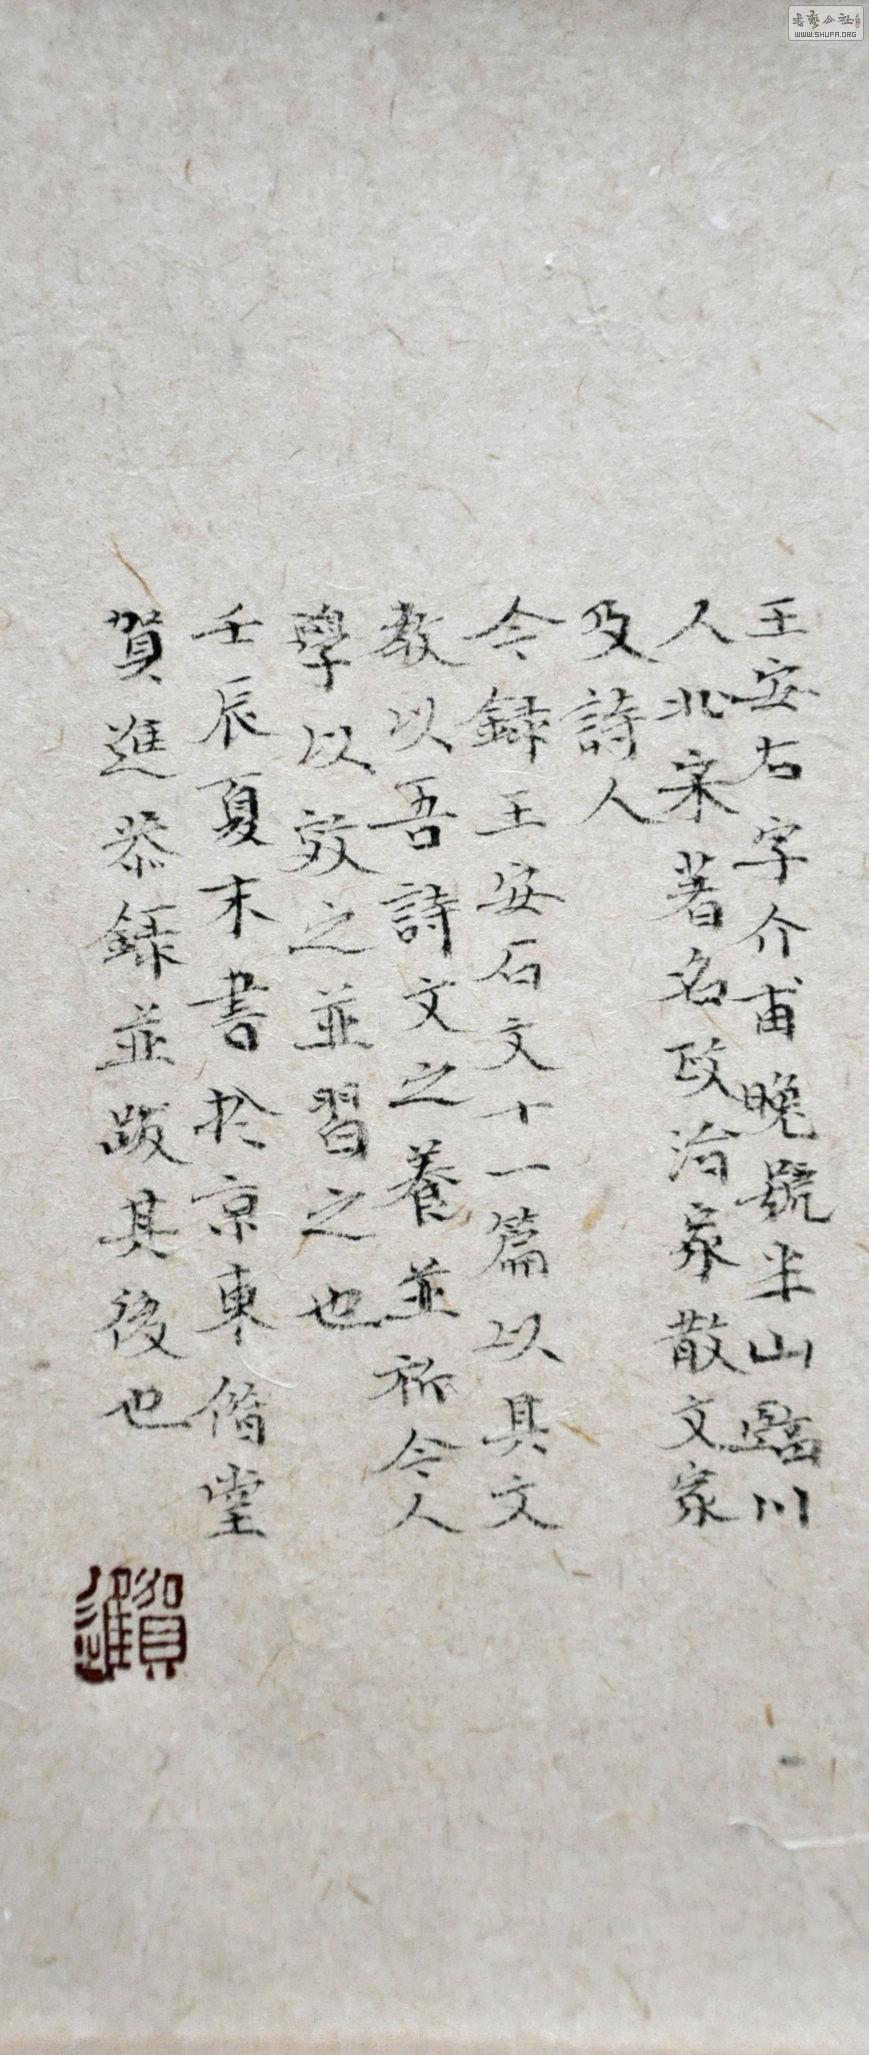 王安石字介甫晚號半山臨川
人北宋著名政治家散文家
及詩人
今録王安石文十一篇以其文
教以吾詩文之養並祈令人
學以效之並習之也
壬辰夏末書於京東偕堂
賀進恭録並跋其後也
賀進
書藝公社
WWW.SHUFA.ORG